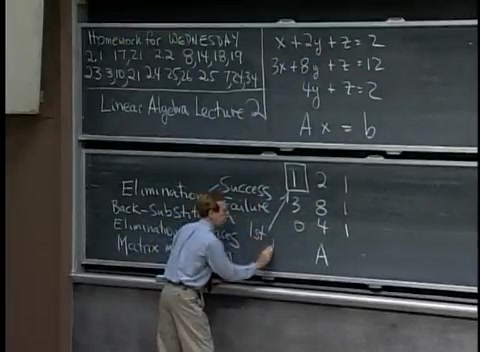 Homework for WEDNESDAY
2.1 17,21 2.2 8,14,18,19
2.3 3,10,21 2.4 25,26 2.5 7,24,34
Linear Algebra Lecture 2
x + 2y + z = 2
3x + 8y + z = 12
4y + z = 2
A x = b
Elimination Success
Failure
Back-Substit
Elimination
Matrix
1st
1 2 1
3 8 1
0 4 1
A